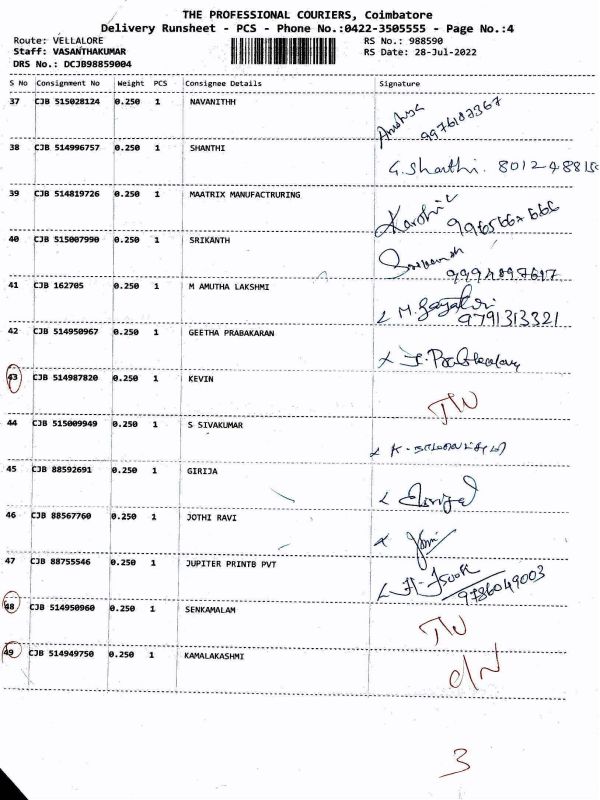 THE PROFESSIONAL COURIERS, Coimbatore
Delivery Runsheet - PCS - Phone No.:0422-3505555 - Page No.:4
Route: VELLALORE RS No.: 988590
Staff: VASANTHAKUMAR RS Date: 28-Jul-2022
DRS No.: DCJB98859004
S No Consignment No Weight PCS Consignee Details Signature
37 CJB 515028124 0.250 1 NAVANITHH
9976183367
38 CJB 514996757 0.250 1 SHANTHI G. Shanthi. 8012488150
39 CJB 514819726 0.250 1 MAATRIX MANUFACTRURING
40 CJB 515007990 0.250 1 SRIKANTH
41 CJB 162705 0.250 1 M AMUTHA LAKSHMI
9791313321
42 CJB 514950967 0.250 1 GEETHA PRABAKARAN
43 CJB 514987820 0.250 1 KEVIN
44 CJB 515009949 0.250 1 S SIVAKUMAR
45 CJB 88592691 0.250 1 GIRIJA
46 CJB 88567760 0.250 1 JOTHI RAVI
47 CJB 88755546 0.250 1 JUPITER PRINTB PVT
9786049003
48 CJB 514950960 0.250 1 SENKAMALAM
49 CJB 514949750 0.250 1 KAMALAKASHMI
3